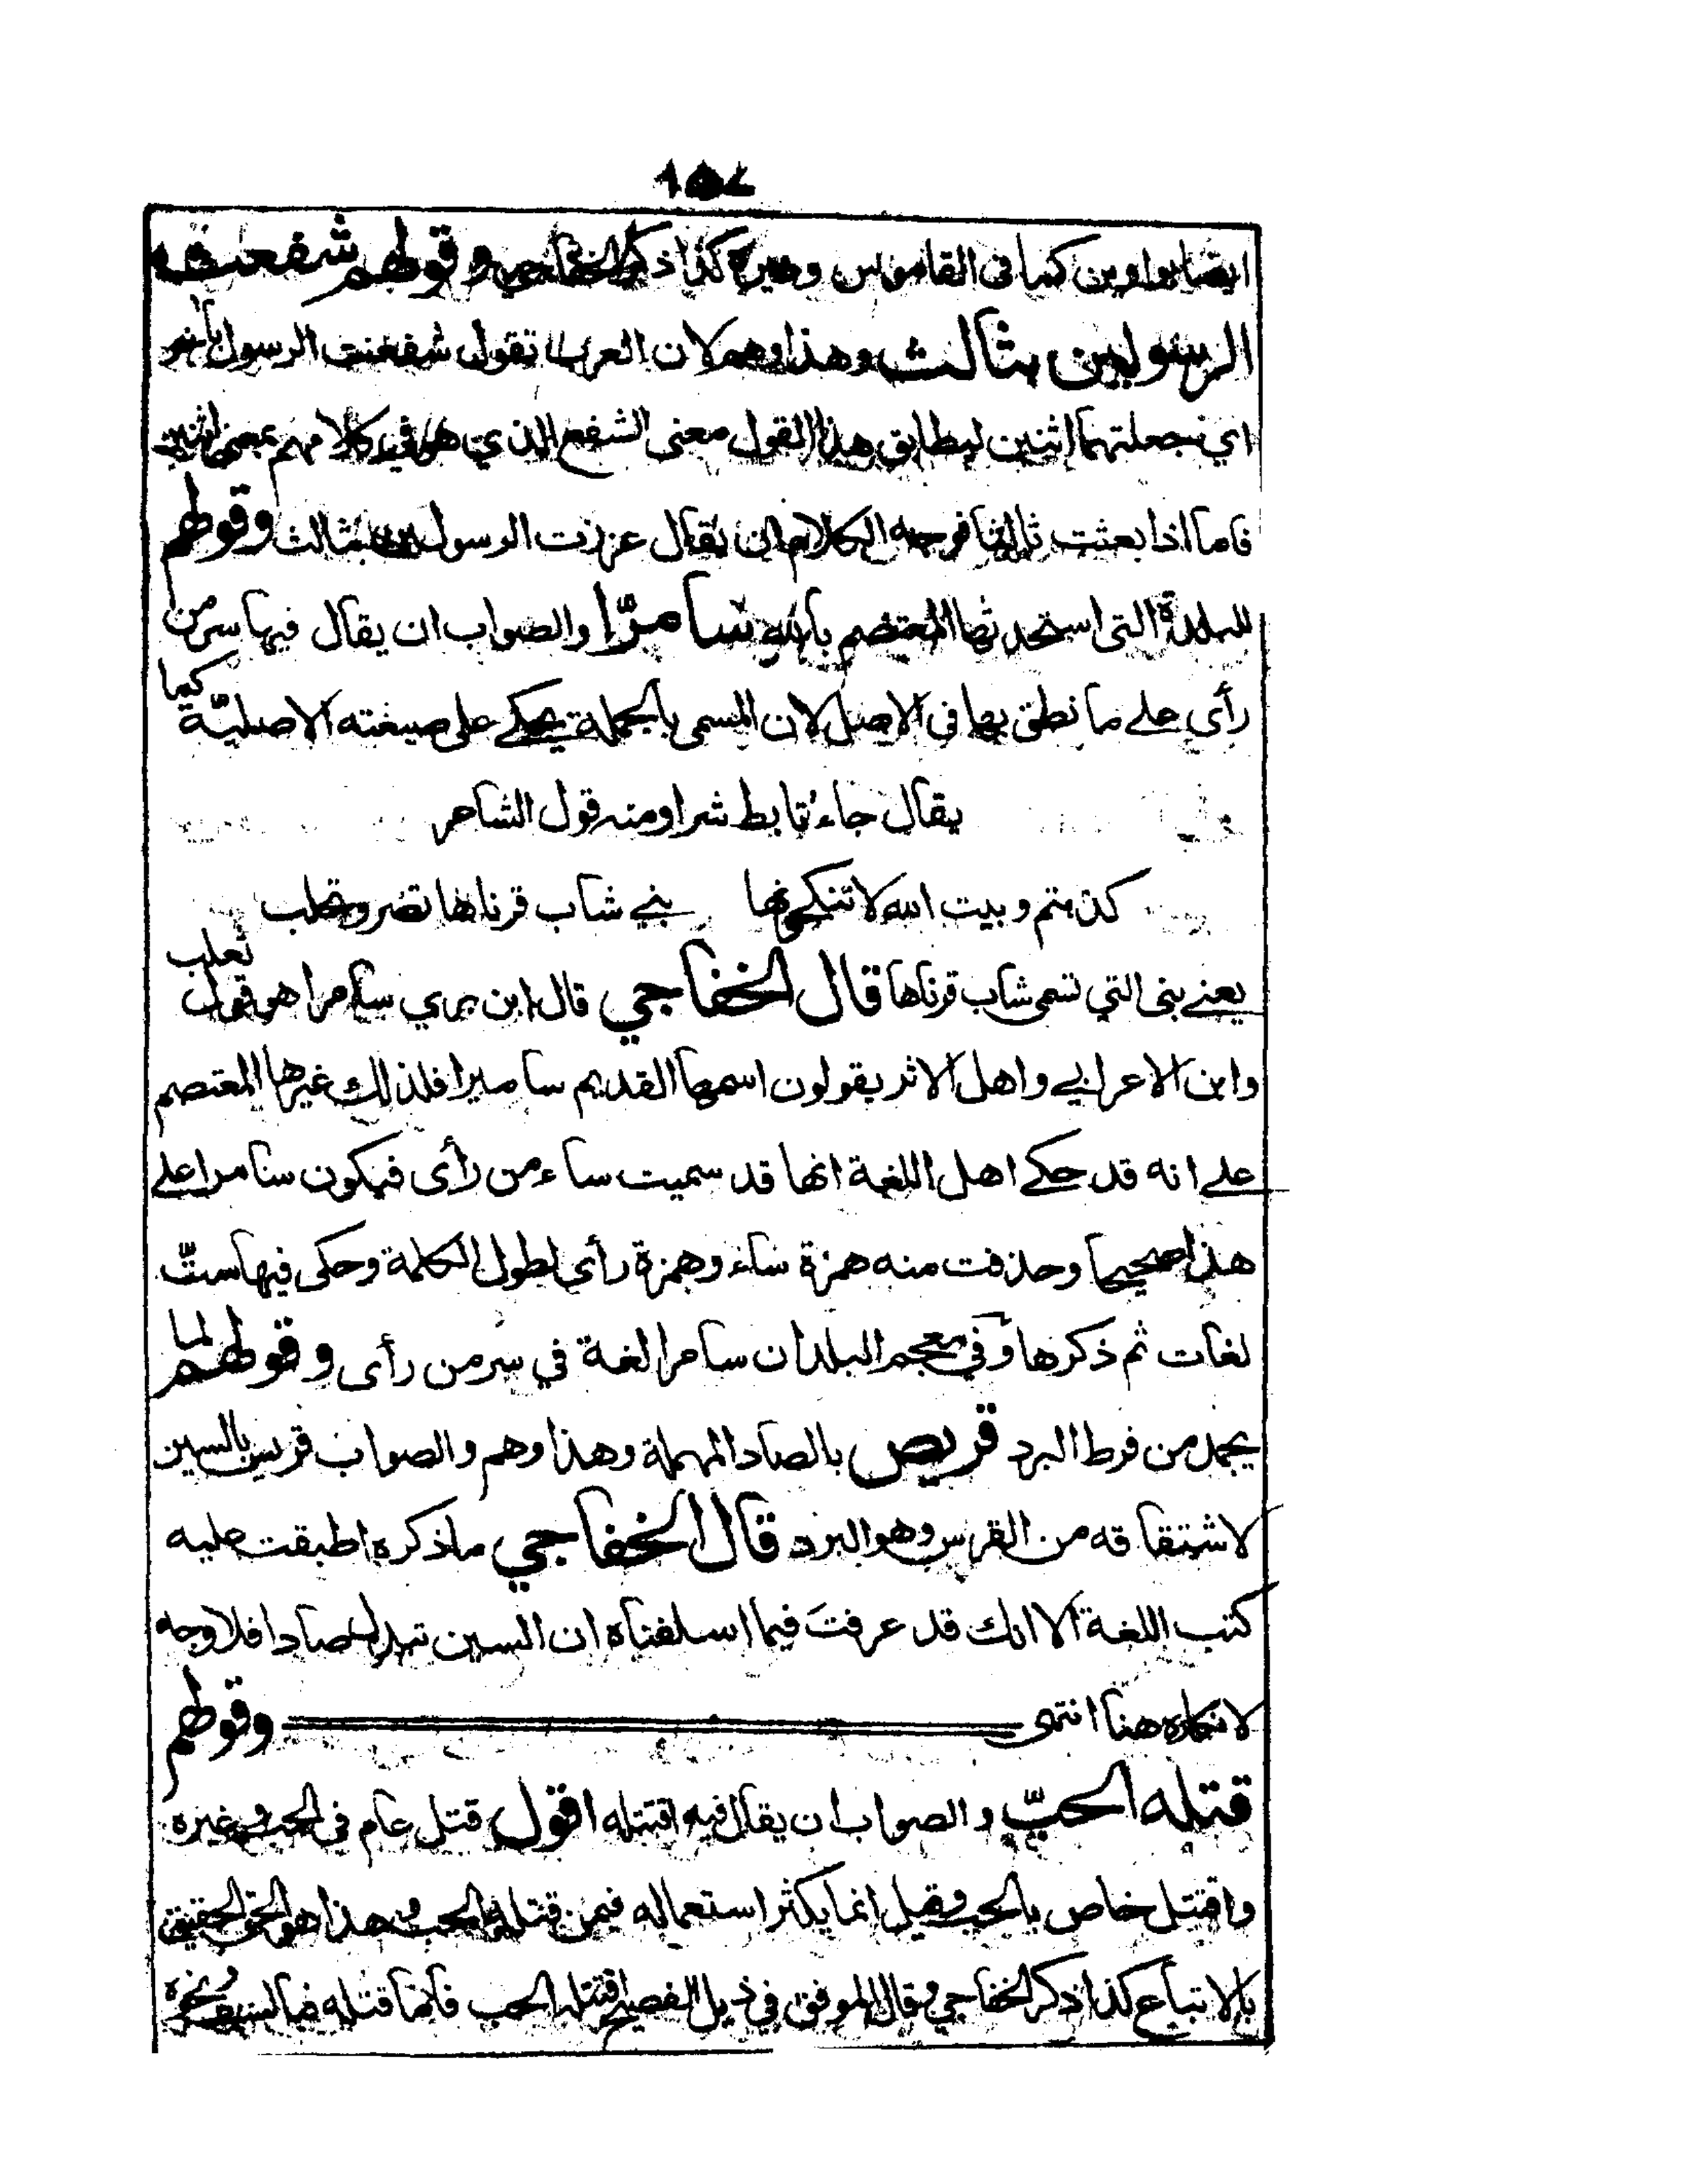 ١٥٤
ايضا بواوين كما في القاموس وغيره كذا ذكره الخفاجي وقولهم شفعت
الرسولين بثالث وهذا وهم لان العرب تقول شفعت الرسول بآخر
اي جعلتهما اثنين ليطابق هذا القول معنى الشفع الذي هو في كلامهم بمعنى اثنين
فاما اذا بعثت ثالثا فوجه الكلام ان يقال عززت الرسولين بثالث وقولهم
للبلدة التي استحدثها المعتصم بالله سامرّا والصواب ان يقال فيها سر من
رأى على ما نطق بها في الاصل لان المسمى بالجملة يحكى على صيغته الاصليّة كما
يقال جاء تابط شرا ومنه قول الشاعر
كذبتم وبيت الله لا تنكحونها بني شاب قرناها تصر وتحلب
يعني بني التي تسمى شاب قرناها قال الخفاجي قال ابن بري سامرا هو قول ثعلب
وابن الاعرابي واهل الاثر يقولون اسمها القديم ساميرا فلذلك غيرها المعتصم
على انه قد حكى اهل اللغة انها قد سميت ساء من رأى فيكون سامرا على
هذا صحيحا وحذفت منه همزة ساء وهمزة رأى لطول الكلمة وحكى فيها ستّ
لغات ثم ذكرها وفي معجم البلدان سامرا لغة في سر من رأى وقولهم لما
يجمد من فرط البرد قريص بالصاد المهملة وهذا وهم والصواب قريس بالسين
لاشتقاقه من القرس وهو البرد قال الخفاجي ما ذكره اطبقت عليه
كتب اللغة الا انك قد عرفت فيما اسلفناه ان السين تبدل صادا فلا وجه
لانكاره هنا انتهى وقولهم
قتله الحبّ والصواب ان يقال فيه اقتتله اقول قتل عام في الحب وغيره
واقتتل خاص بالحب وقيل انما يكثر استعماله فيمن قتله الحب وهذا هو الحق الحقيق
بالاتباع كذا ذكر الخفاجي وقال الموفق في ذيل الفصيح اقتتله الحب فأما قتله فبالسيف ونحوه